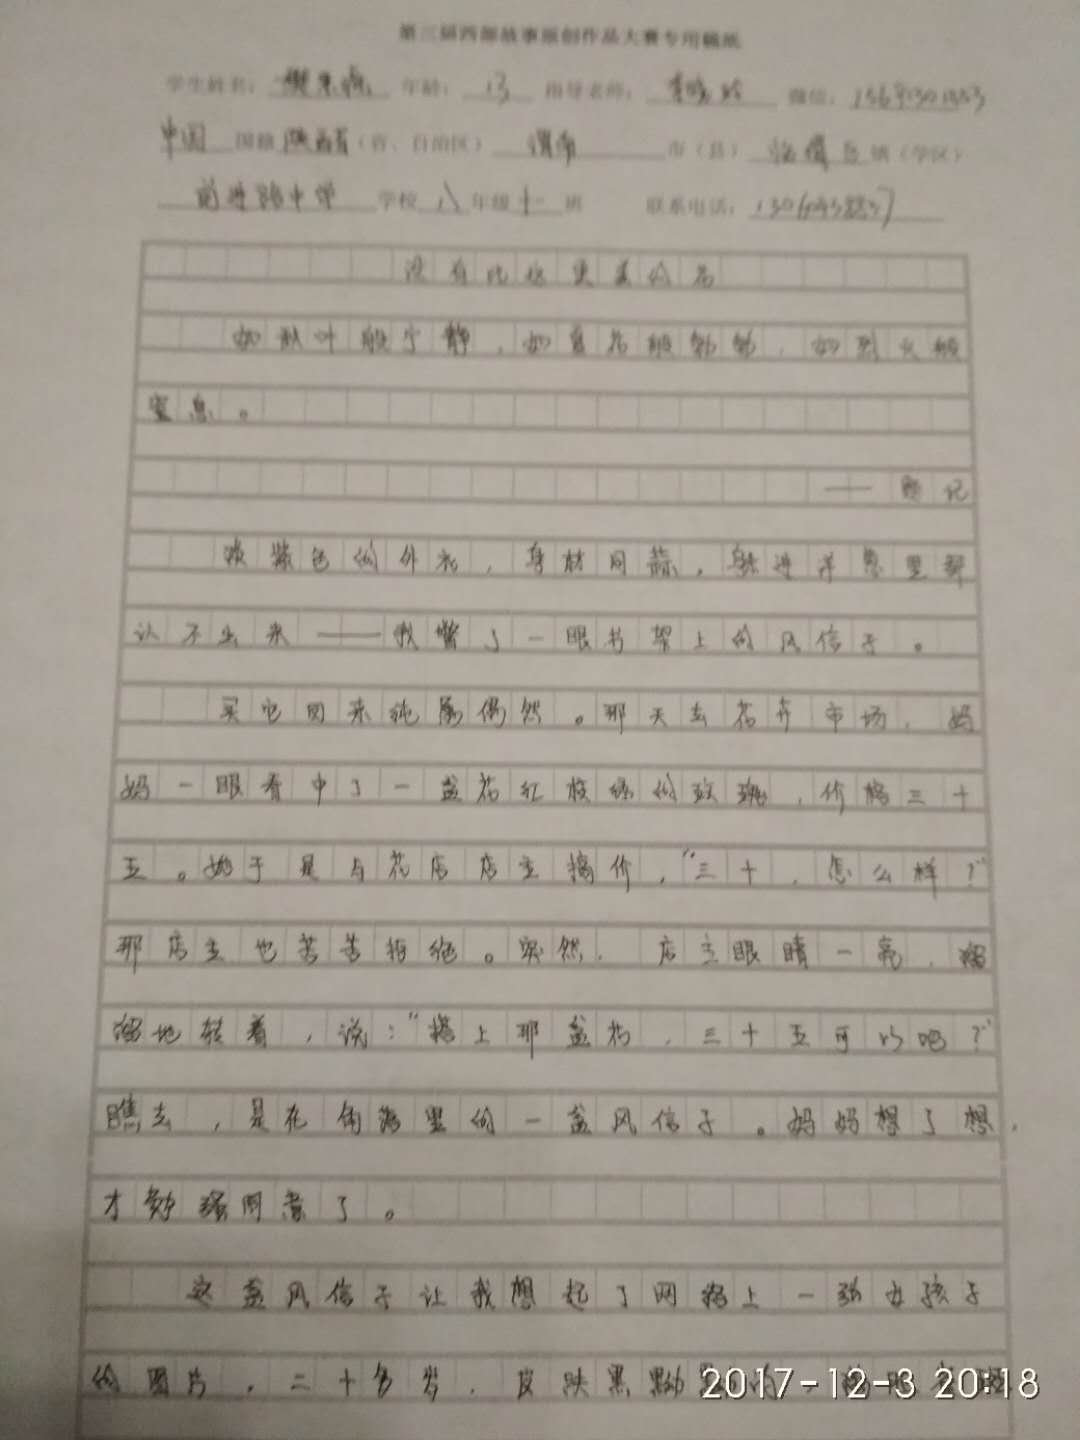 第三届西部故事原创作品大赛专用稿纸
学生姓名： 年龄：13 指导老师： 微信：
中国 国籍 陕西省（省、自治区） 渭南 市（县） 临渭区 镇（学区）
前进路中学 学校 八 年级 十一 班 联系电话：
没有比这更美的花
如秋叶般宁静，如夏花般勃勃，如烈火般
窒息。
——题记
淡紫色的外衣，身材同蒜，躲进洋葱里都
认不出来——我瞥了一眼书架上的风信子。
买它回来纯属偶然。那天去花卉市场，妈
妈一眼看中了一盆花红枝绿的玫瑰，价格三十
五。她于是与花店店主搞价，“三十，怎么样？”
那店主也苦苦拒绝。突然，店主眼睛一亮，溜
溜地转着，说：“搭上那盆花，三十五可以吧？”
瞧去，是在角落里的一盆风信子。妈妈想了想，
才勉强同意了。
这盆风信子让我想起了网络上一张女孩子
的图片，二十多岁，皮肤黑黝
2017-12-3 20:18